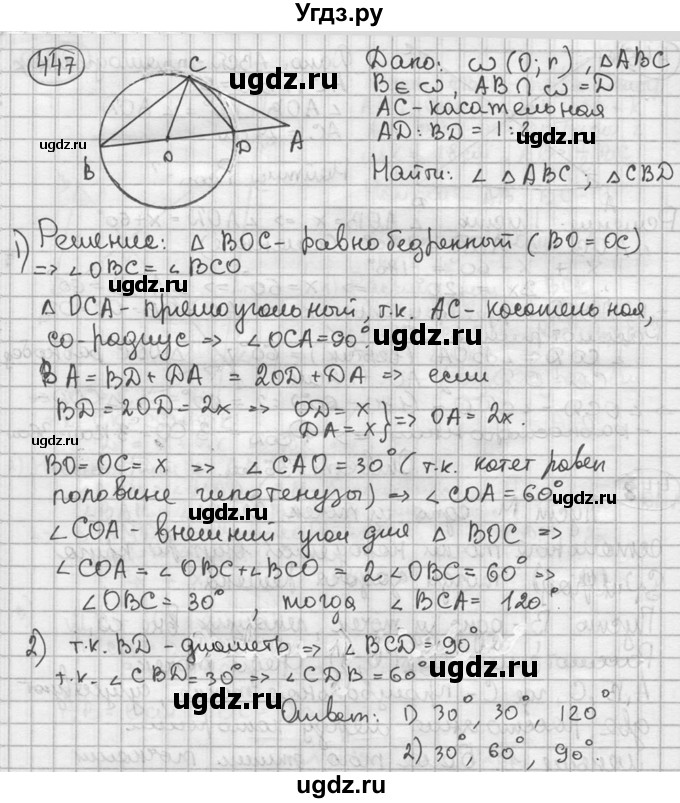 Угдз.ру
447
Дано: ω (0; r), △ABC
B ∈ ω, AB ∩ ω = D
AC - касательная
AD : BD = 1 : 2
Найти: ∠ △ABC ; △CBD
C
B
O
D
A
ugdz.ru
1) Решение: △ BOC - равнобедренный (BO = OC)
=> ∠OBC = ∠BCO
△ OCA - прямоугольный, т.к. AC - касательная,
CO - радиус => ∠OCA = 90°.
BA = BD + DA = 2OD + DA => если
BD = 2OD = 2x => OD = x } => OA = 2x.
DA = x
BO = OC = x => ∠CAO = 30° (т.к. катет равен
половине гипотенузы) => ∠COA = 60°
∠COA - внешний угол для △ BOC =>
∠COA = ∠OBC + ∠BCO = 2∠OBC = 60° =>
∠OBC = 30°, тогда ∠BCA = 120°.
2) т.к. BD - диаметр => ∠BCD = 90°
т.к. ∠CBD = 30° => ∠CDB = 60°
Ответ: 1) 30°, 30°, 120°
2) 30°, 60°, 90°.
ugdz.ru